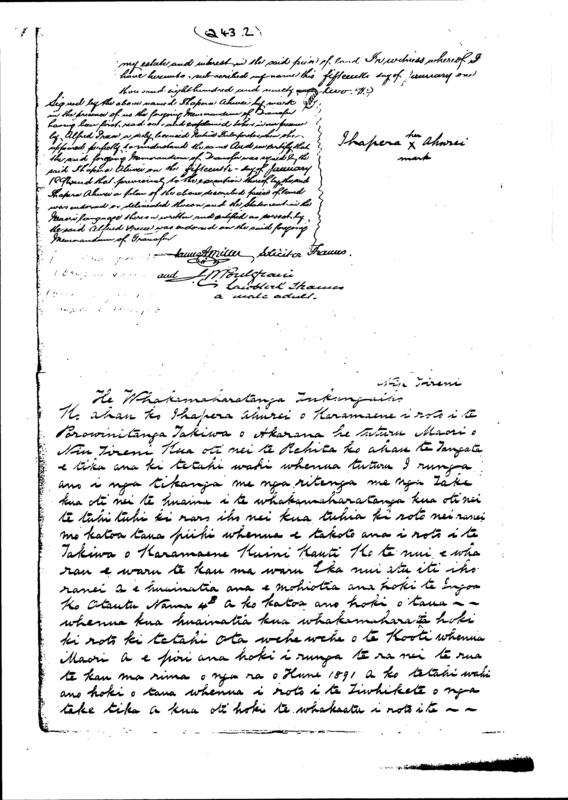 (243.2)
my estate and interest in the said piece of land In witness whereof I
have hereunto subscribed my name this fifteenth day of January one
thousand eight hundred and ninety two.
Signed by the above named Ihapera Ahurei by mark
in the presence of us the foregoing Memorandum of Transfer
having been first read over and explained to her in our presence
by Alfred a duly licensed Native Interpreter when she
appeared perfectly to understand the same And we certify that
the said foregoing Memorandum of Transfer was signed by the
said Ihapera Ahurei on the fifteenth day of January
1892 and that previously to the execution thereof by the said
Ihapera Ahurei a plan of the above described piece of land
was endorsed or delineated thereon and the Statement in the
Maori language thereon written and certified as correct by
the said Alfred was endorsed on the said foregoing
Memorandum of Transfer
Ihapera her x mark Ahurei
Miller Solicitor Thames.
and
Thames
a male adult.
Niu Tireni
He Whakamaharatanga Tukunga
Ko ahau ko Ihapera Ahurei o Haramaene i roto i te
Porowinitanga Takiwa o Akarana he tuturu Maori o
Niu Tireni Kua oti nei te Rehita ko ahau te Tangata
e tika ana ki tetahi wahi whenua tuturu I runga
ano i nga tikanga me nga ritenga me nga Take
kua oti nei te huaina i te whakamaharatanga kua oti nei
te tuhi tuhi ki raro iho nei kua tuhia ki roto nei ranei
mo katoa taua piihi whenua e takoto ana i roto i te
Takiwa o Haramaene Kuini Kauti Ko te nui e wha
rau e waru te kau ma waru Eka nui atu iti iho
ranei a e huainatia ana e mohiotia ana hoki te Ingoa
Ko Otautu Nama 4B A ko katoa ano hoki o taua ~ ~
whenua kua huainatia kua whakamaharatia hoki
ki roto ki tetahi Ota wehe wehe o te Kooti whenua
Maori A e piri ana hoki i runga te ra nei te rua
te kau ma rima o nga ra o Hune 1891 A ko tetahi wahi
ano hoki o taua whenua i roto i te Tiwhikete o nga
take tika A kua oti hoki te whakaatu i roto i te ~ ~